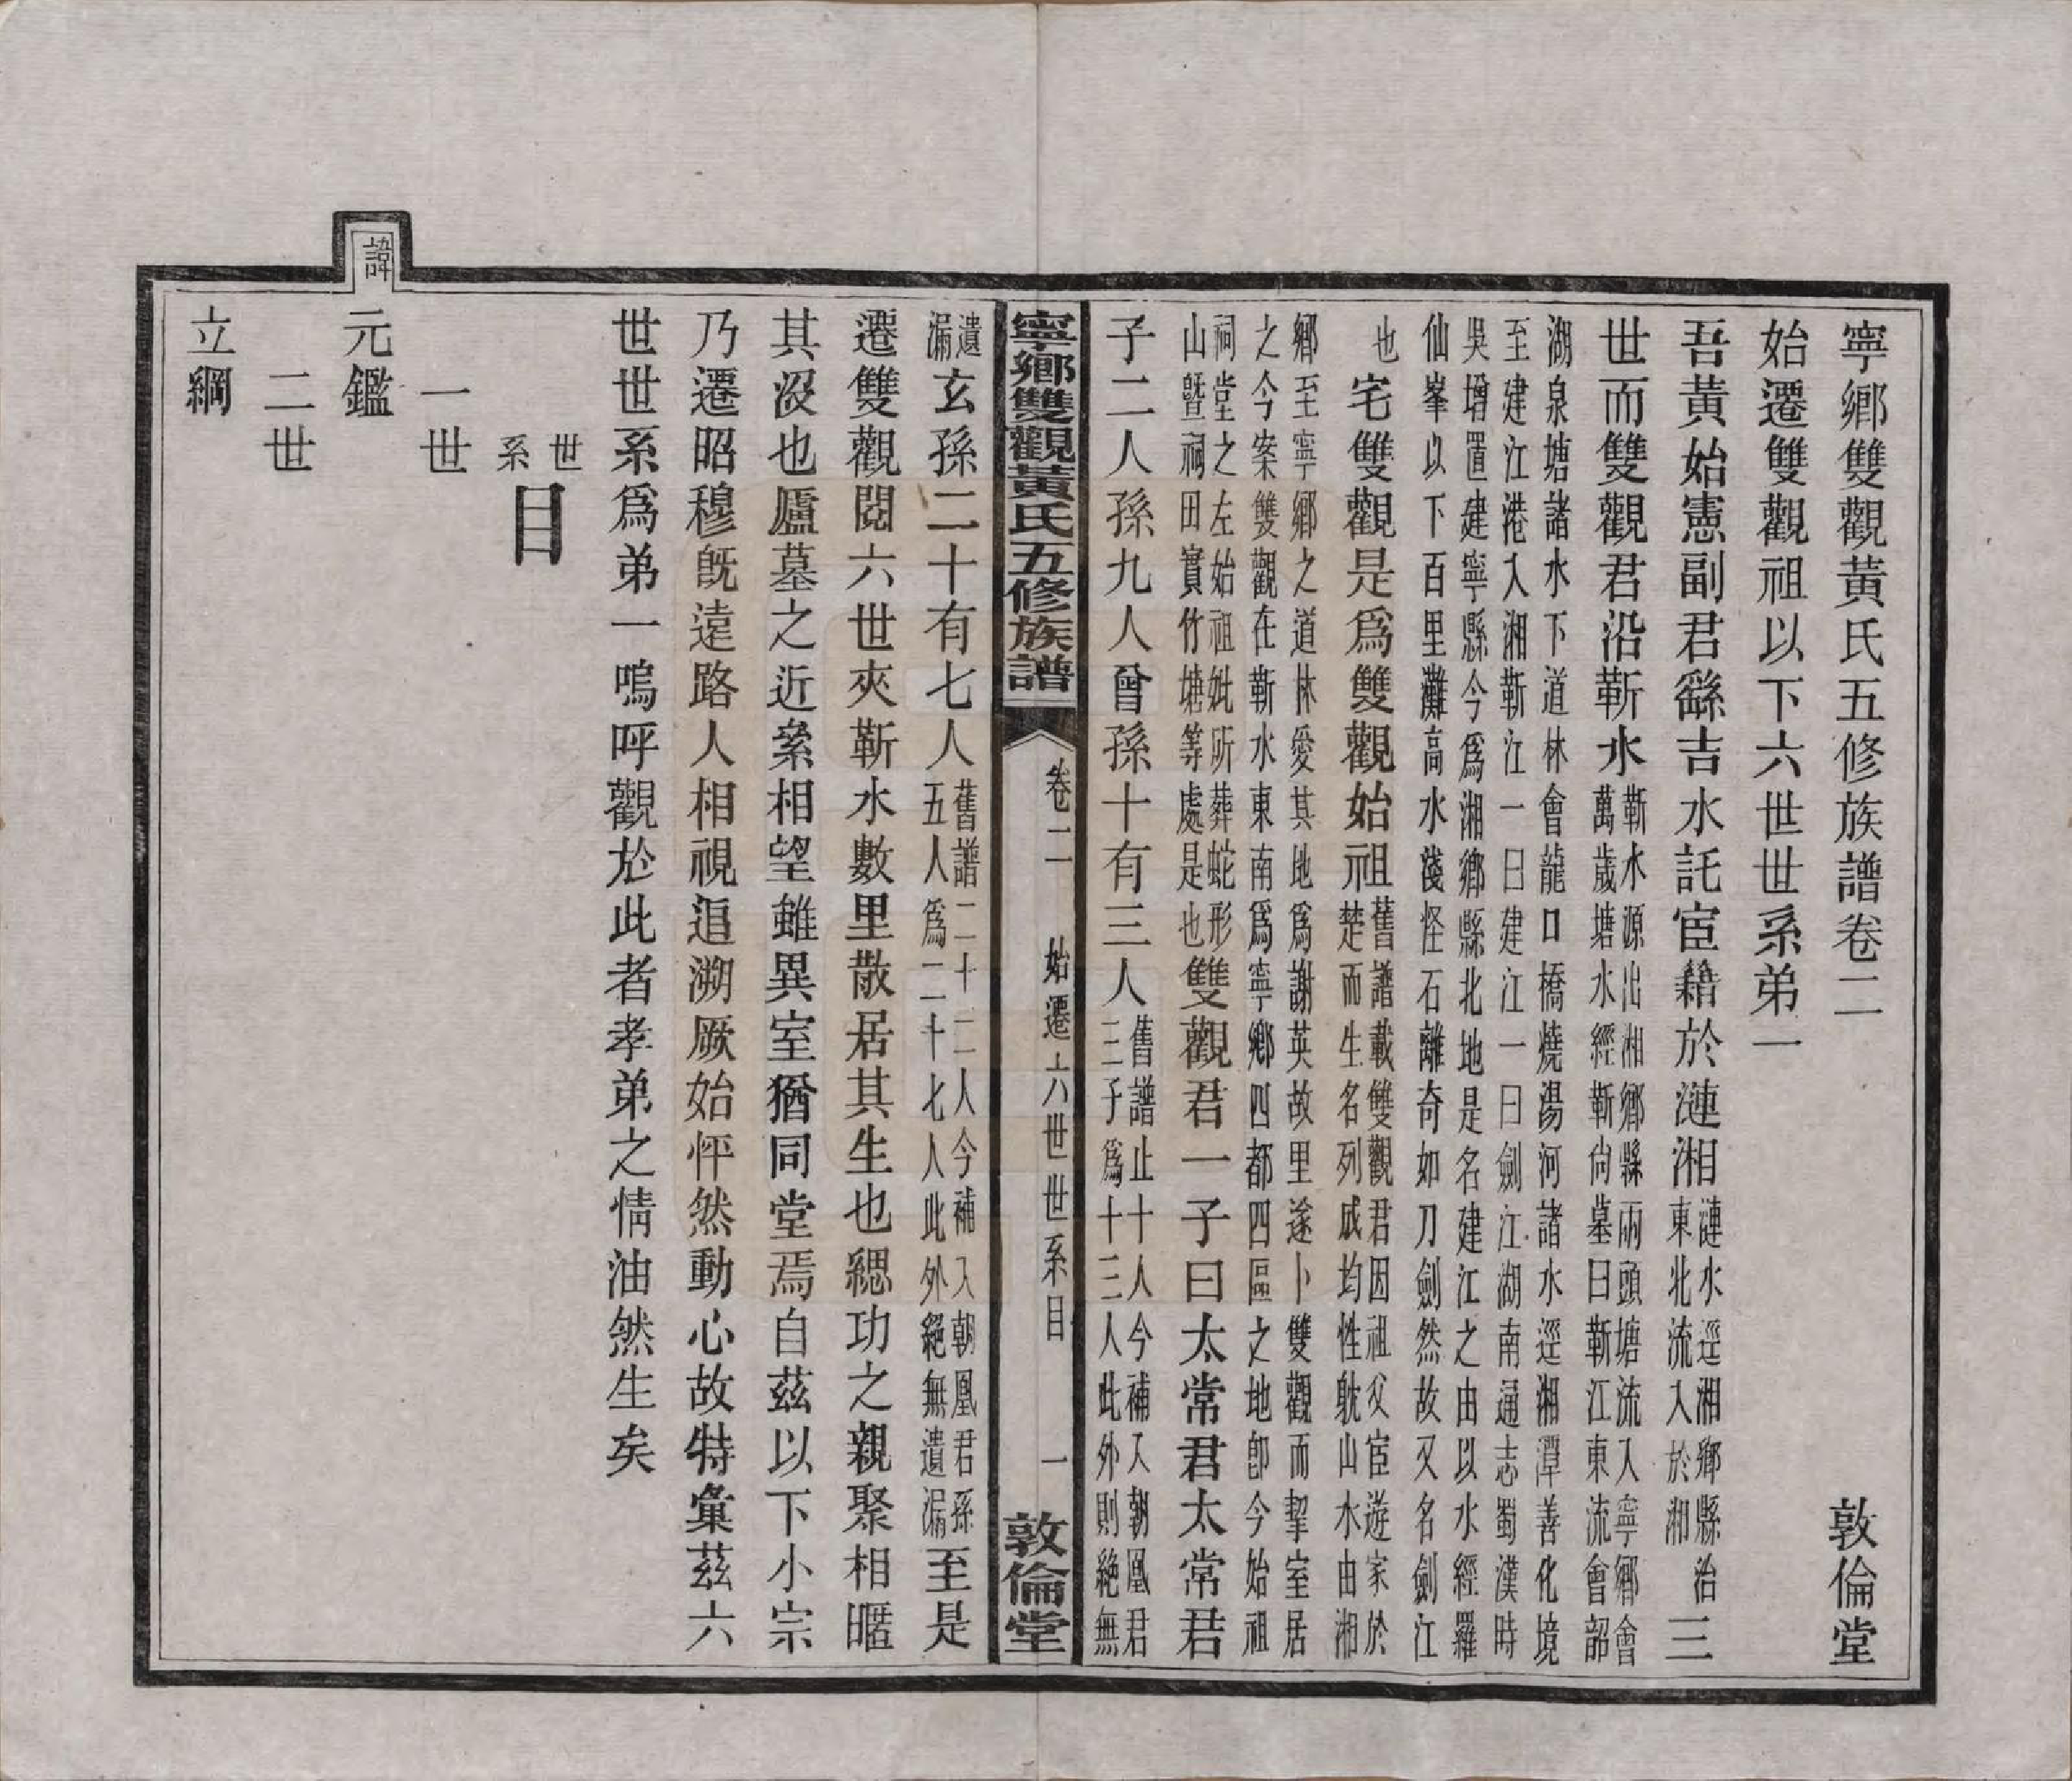 寧鄉雙觀黃氏五修族譜卷二
敦倫堂
始遷雙觀祖以下六世世系弟一
吾黃始憲副君繇吉水託宦籍於漣湘漣水逕湘鄉縣治東北流入於湘三
世而雙觀君沿靳水靳水源出湘鄉縣兩頭塘流入寧鄉會萬歲塘水經靳尙墓曰靳江東流會韶
湖泉塘諸水下道林會龍口橋燒湯河諸水逕湘潭善化境
至建江港入湘靳江一曰建江一曰劍江湖南通志蜀漢時
吳增置建寧縣今爲湘鄉縣北地是名建江之由以水經羅
仙峯以下百里灘高水淺怪石離奇如刀劍然故又名劍江
也宅雙觀是爲雙觀始祖舊譜載雙觀君因祖父宦遊家於楚而生名列成均性躭山水由湘
鄉至寧鄉之道林愛其地爲謝英故里遂卜雙觀而挈室居
之今案雙觀在靳水東南爲寧鄉四都四區之地卽今始祖
祠堂之左始祖妣所葬蛇形山曁祠田實竹塘等處是也雙觀君一子曰太常君太常君
子二人孫九人曾孫十有三人舊譜止十人今補入朝凰君三子爲十三人此外則絕無
寧鄉雙觀黃氏五修族譜
卷二
始遷六世世系目
一
敦倫堂
遺漏玄孫二十有七人舊譜二十二人今補入朝凰君孫五人爲二十七人此外絕無遺漏至是
遷雙觀閱六世夾靳水數里散居其生也緦功之親聚相暱
其沒也廬墓之近纍相望雖異室猶同堂焉自茲以下小宗
乃遷昭穆旣遠路人相視追溯厥始怦然動心故特彙茲六
世世系爲弟一嗚呼觀於此者孝弟之情油然生矣
世系目
一世
諱
元鑑
二世
立綱